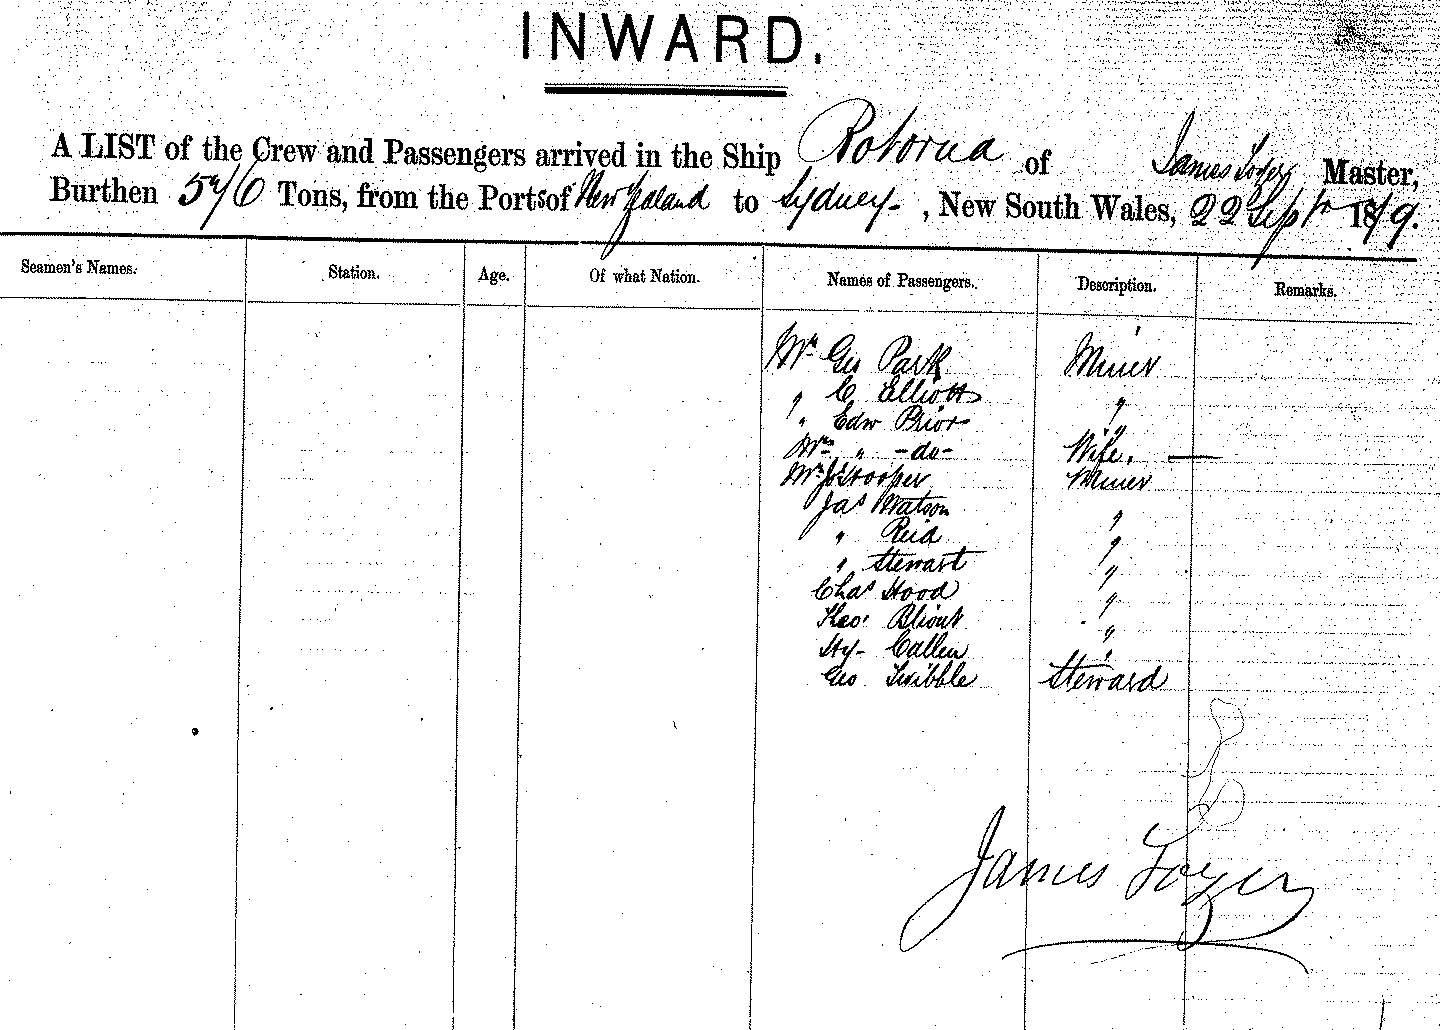 INWARD.
A LIST of the Crew and Passengers arrived in the Ship Rotorua of James Tozer Master,
Burthen 576 Tons, from the Ports of New Zealand to Sydney - , New South Wales, 22 Sept 1879.
Seamen's Names. Station. Age. Of what Nation. Names of Passengers. Description. Remarks.
Mr Geo Park Miner
" C Elliott "
" Edw Prior "
Mrs " -do- Wife.
Mr Hooper Miner
Jas Watson "
" Reid "
" Stewart "
Chas Hood "
Blount "
Hy- Callen "
Geo Steward
James Tozer